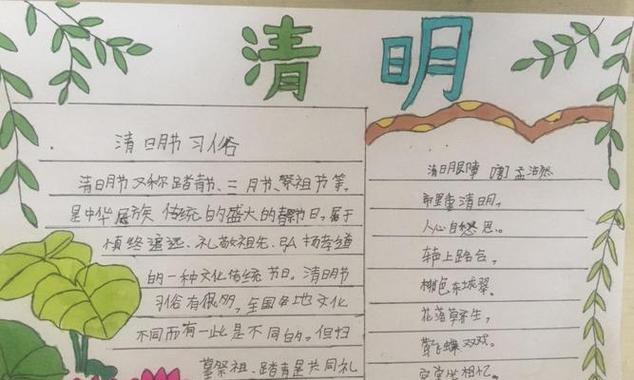 清明
清明节习俗
清明节又称踏青节、三月节、祭祖节等,
是中华民族传统的盛大的春祭节日,属于
慎终追远、礼敬祖先、弘扬孝道
的一种文化传统节日。清明节
习俗有很多,全国各地文化
不同而有一些是不同的。但扫
墓祭祖、踏青是共同礼
清明即事 [唐] 孟浩然
帝里重清明,
人心自愁思。
车声上路合,
柳色东城翠。
花落草齐生,
莺飞蝶双戏。
空堂坐相忆,